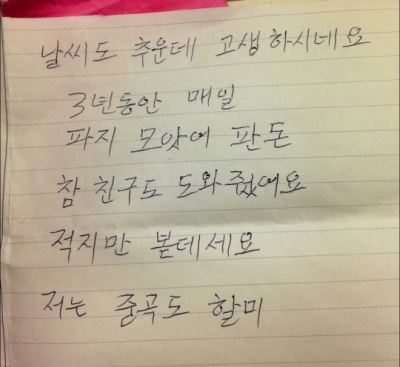 날씨도 추운데 고생하시네요
3년동안 매일
파지 모앗어 판돈
참 친구도 도와줬어요
적지만 볻데세요
저는 중곡도 할미